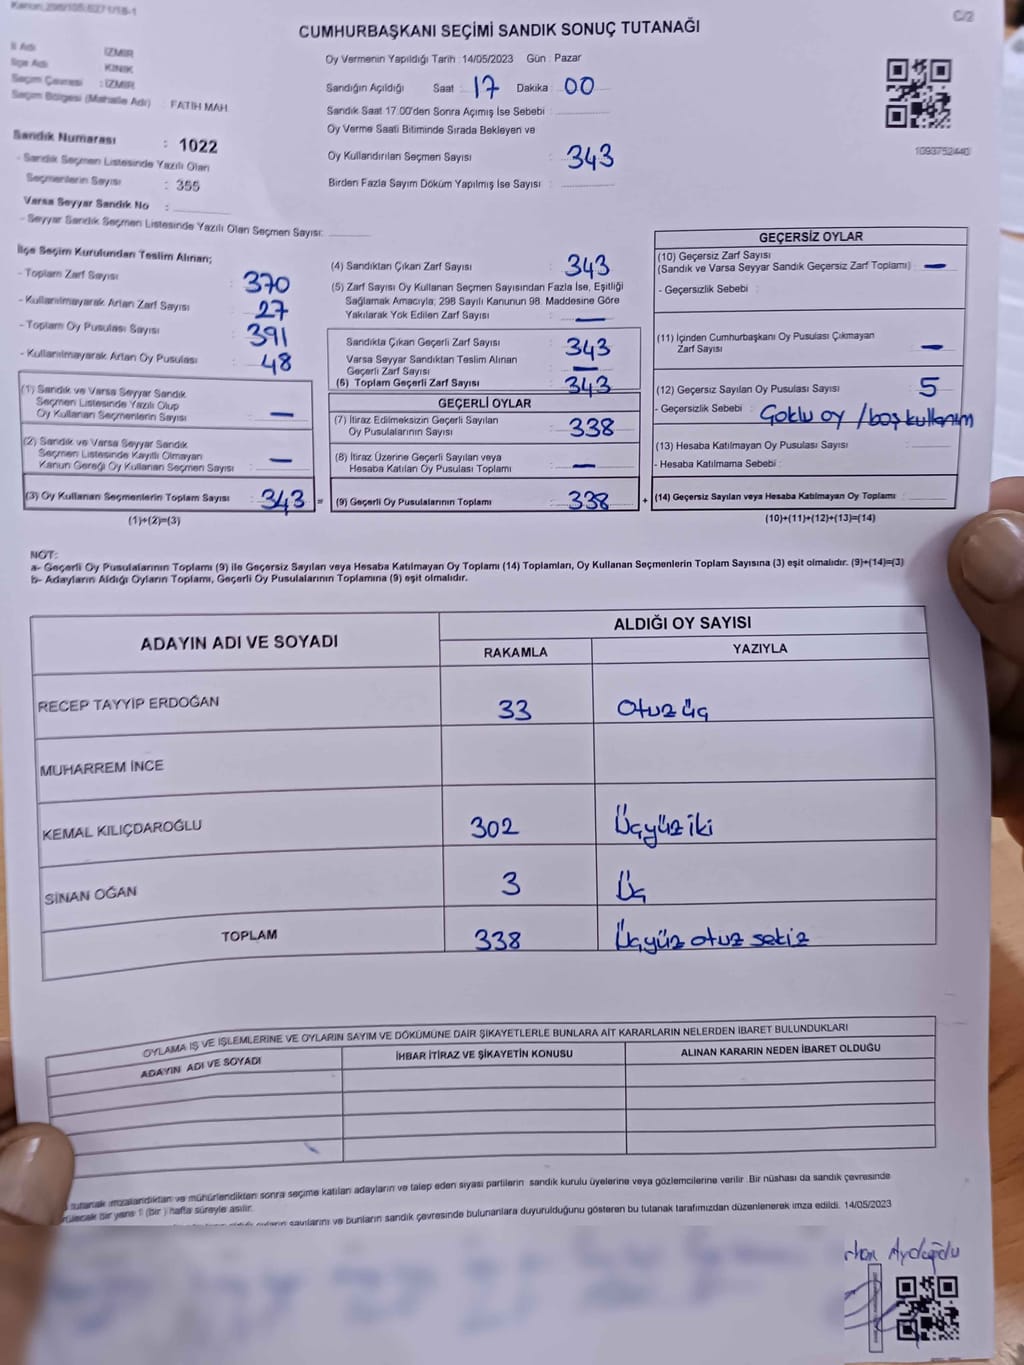 Kanun;298/105;6271/18-1
C/2
CUMHURBAŞKANI SEÇİMİ SANDIK SONUÇ TUTANAĞI
İl Adı : İZMİR
İlçe Adı : KINIK
Seçim Çevresi : İZMİR
Seçim Bölgesi (Mahalle Adı) : FATİH MAH.
Oy Vermenin Yapıldığı Tarih : 14/05/2023 Gün : Pazar
Sandığın Açıldığı Saat : 17 Dakika : 00
Sandık Saat 17.00'den Sonra Açımış İse Sebebi :
Oy Verme Saati Bitiminde Sırada Bekleyen ve
Oy Kullandırılan Seçmen Sayısı : 343
Birden Fazla Sayım Döküm Yapılmış İse Sayısı :
1093752440
Sandık Numarası : 1022
- Sandık Seçmen Listesinde Yazılı Olan
Seçmenlerin Sayısı : 355
Varsa Seyyar Sandık No :
- Seyyar Sandık Seçmen Listesinde Yazılı Olan Seçmen Sayısı:
İlçe Seçim Kurulundan Teslim Alınan;
- Toplam Zarf Sayısı : 370
- Kullanılmayarak Artan Zarf Sayısı : 27
- Toplam Oy Pusulası Sayısı : 391
- Kullanılmayarak Artan Oy Pusulası : 48
(1) Sandık ve Varsa Seyyar Sandık
Seçmen Listesinde Yazılı Olup
Oy Kullanan Seçmenlerin Sayısı : —
(2) Sandık ve Varsa Seyyar Sandık
Seçmen Listesinde Kayıtlı Olmayan
Kanun Gereği Oy Kullanan Seçmen Sayısı : —
(3) Oy Kullanan Seçmenlerin Toplam Sayısı : 343 =
(1)+(2)=(3)
(4) Sandıktan Çıkan Zarf Sayısı : 343
(5) Zarf Sayısı Oy Kullanan Seçmen Sayısından Fazla İse, Eşitliği
Sağlamak Amacıyla; 298 Sayılı Kanunun 98. Maddesine Göre
Yakılarak Yok Edilen Zarf Sayısı : —
Sandıkta Çıkan Geçerli Zarf Sayısı : 343
Varsa Seyyar Sandıktan Teslim Alınan
Geçerli Zarf Sayısı : —
(6) Toplam Geçerli Zarf Sayısı : 343
GEÇERLİ OYLAR
(7) İtiraz Edilmeksizin Geçerli Sayılan
Oy Pusulalarının Sayısı : 338
(8) İtiraz Üzerine Geçerli Sayılan veya
Hesaba Katılan Oy Pusulası Toplamı : —
(9) Geçerli Oy Pusulalarının Toplamı : 338 +
GEÇERSİZ OYLAR
(10) Geçersiz Zarf Sayısı
(Sandık ve Varsa Seyyar Sandık Geçersiz Zarf Toplamı) : —
- Geçersizlik Sebebi :
(11) İçinden Cumhurbaşkanı Oy Pusulası Çıkmayan
Zarf Sayısı : —
(12) Geçersiz Sayılan Oy Pusulası Sayısı : 5
- Geçersizlik Sebebi : Çoklu oy / boş kullanım
(13) Hesaba Katılmayan Oy Pusulası Sayısı :
- Hesaba Katılmama Sebebi :
(14) Geçersiz Sayılan veya Hesaba Katılmayan Oy Toplamı :
(10)+(11)+(12)+(13)=(14)
NOT:
a- Geçerli Oy Pusulalarının Toplamı (9) ile Geçersiz Sayılan veya Hesaba Katılmayan Oy Toplamı (14) Toplamları, Oy Kullanan Seçmenlerin Toplam Sayısına (3) eşit olmalıdır. (9)+(14)=(3)
b- Adayların Aldığı Oyların Toplamı, Geçerli Oy Pusulalarının Toplamına (9) eşit olmalıdır.
ADAYIN ADI VE SOYADI
ALDIĞI OY SAYISI
RAKAMLA YAZIYLA
RECEP TAYYİP ERDOĞAN 33 Otuz üç
MUHARREM İNCE
KEMAL KILIÇDAROĞLU 302 Üçyüz iki
SİNAN OĞAN 3 Üç
TOPLAM 338 Üçyüz otuz sekiz
OYLAMA İŞ VE İŞLEMLERİNE VE OYLARIN SAYIM VE DÖKÜMÜNE DAİR ŞİKAYETLERLE BUNLARA AİT KARARLARIN NELERDEN İBARET BULUNDUKLARI
ADAYIN ADI VE SOYADI İHBAR İTİRAZ VE ŞİKAYETİN KONUSU ALINAN KARARIN NEDEN İBARET OLDUĞU
tutanak imzalandıktan ve mühürlendikten sonra seçime katılan adayların ve talep eden siyasi partilerin sandık kurulu üyelerine veya gözlemcilerine verilir. Bir nüshası da sandık çevresinde
bir yere 1 (bir) hafta süreyle asılır.
sayılarını ve bunların sandık çevresinde bulunanlara duyurulduğunu gösteren bu tutanak tarafımızdan düzenlenerek imza edildi. 14/05/2023